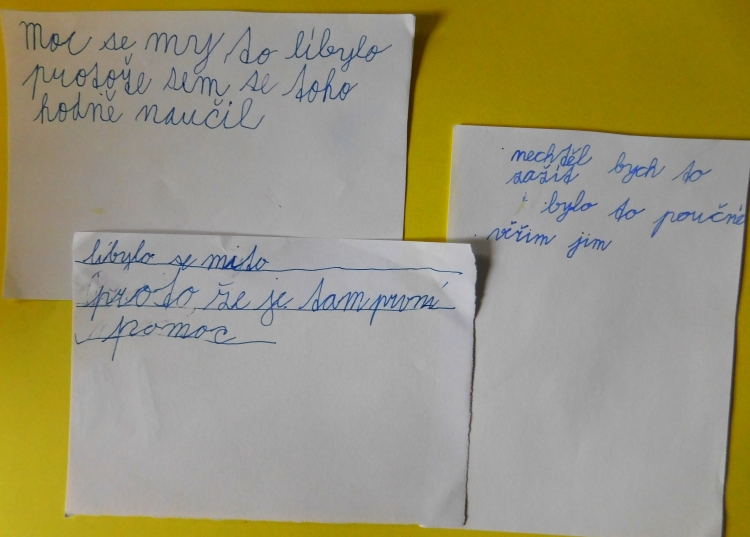 Moc se my to líbylo
protože sem se toho
hodně naučil
nechtěl bych to
zažít
bylo to poučné
věřim jim
líbylo se mito
proto, že je tam první
pomoc